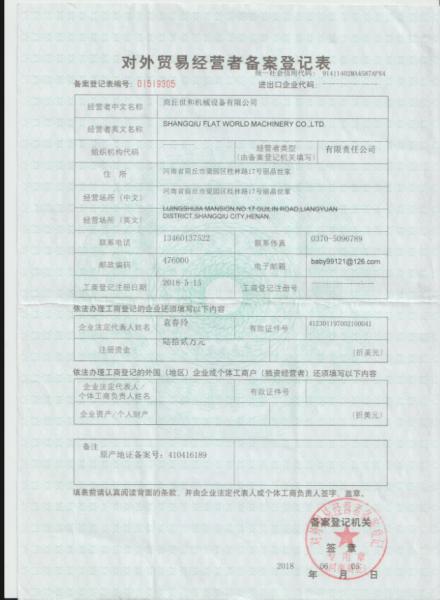 对外贸易经营者备案登记表
统一社会信用代码: 91411402MA4587AP84
备案登记表编号: 01519305 进出口企业代码:
经营者中文名称 商丘世和机械设备有限公司
经营者英文名称 SHANGQIU FLAT WORLD MACHINERY CO.,LTD.
组织机构代码 经营者类型 (由备案登记机关填写) 有限责任公司
住 所 河南省商丘市梁园区桂林路17号丽晶世家
经营场所(中文) 河南省商丘市梁园区桂林路17号丽晶世家
经营场所(英文) LIJINGSHIJIA MANSION,NO.17 GUILIN ROAD,LIANGYUAN
DISTRICT,SHANGQIU CITY,HENAN.
联系电话 13460137522 联系传真 0370-5096789
邮政编码 476000 电子邮箱 baby99121@126.com
工商登记注册日期 2018-5-15 工商登记注册号
依法办理工商登记的企业还须填写以下内容
企业法定代表人姓名 袁春玲 有效证件号 412301197002100041
注册资金 陆拾贰万元 (折美元)
依法办理工商登记的外国(地区)企业或个体工商户(独资经营者)还须填写以下内容
企业法定代表人/
个体工商负责人姓名 有效证件号
企业资产/个人财产 (折美元)
备注
原产地证备案号: 410416189
填表前请认真阅读背面的条款,并由企业法定代表人或个体工商负责人签字、盖章。
备案登记机关
签 章
2018 06 05
年 月 日